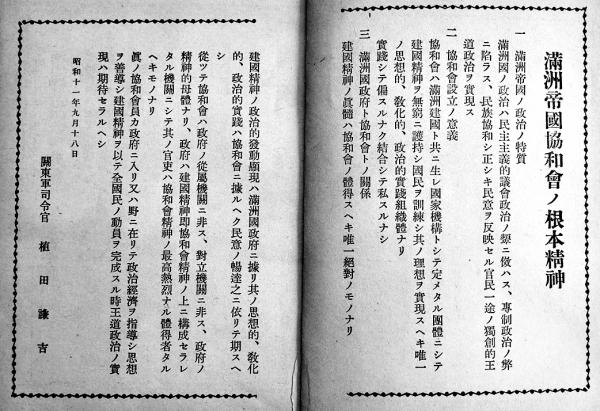 滿洲帝國協和會ノ根本精神
一 滿洲帝國ノ政治ノ特質
滿洲國ノ政治ハ民主主義的議會政治ノ顰ニ倣ハス、專制政治ノ弊
ニ陷ラス、民族協和シ正シキ民意ヲ反映セル官民一途ノ獨創的王
道政治ヲ實現ス
二 協和會設立ノ意義
協和會ハ滿洲建國ト共ニ生レ國家機構トシテ定メタル團體ニシテ
建國精神ヲ無窮ニ護持シ國民ヲ訓練シ其ノ理想ヲ實現スヘキ唯一
ノ思想的、敎化的、政治的實踐組織體ナリ
實踐シテ偏スルナク結合シテ私スルナシ
三 滿洲國政府ト協和會トノ關係
建國精神ノ眞髓ハ協和會ノ體得スヘキ唯一絕對ノモノナリ
建國精神ノ政治的發動顯現ハ滿洲國政府ニ據リ其ノ思想的、敎化
的、政治的實踐ハ協和會ニ據ルヘク民意ノ暢達之ニ依リテ期スヘ
シ
從ツテ協和會ハ政府ノ從屬機關ニ非ス、對立機關ニ非ス、政府ノ
精神的母體ナリ、政府ハ建國精神即協和會精神ノ上ニ構成セラレ
タル機關ニシテ其ノ官吏ハ協和會精神ノ最高熱烈ナル體得者タル
ヘキモノナリ
眞ノ協和會員カ政府ニ入リ又ハ野ニ在リテ政治經濟ヲ指導シ思想
ヲ善導シ建國精神ヲ以テ全國民ノ動員ヲ完成スル時王道政治ノ實
現ハ期待セラルヘシ
昭和十一年九月十八日
關東軍司令官 植田謙吉